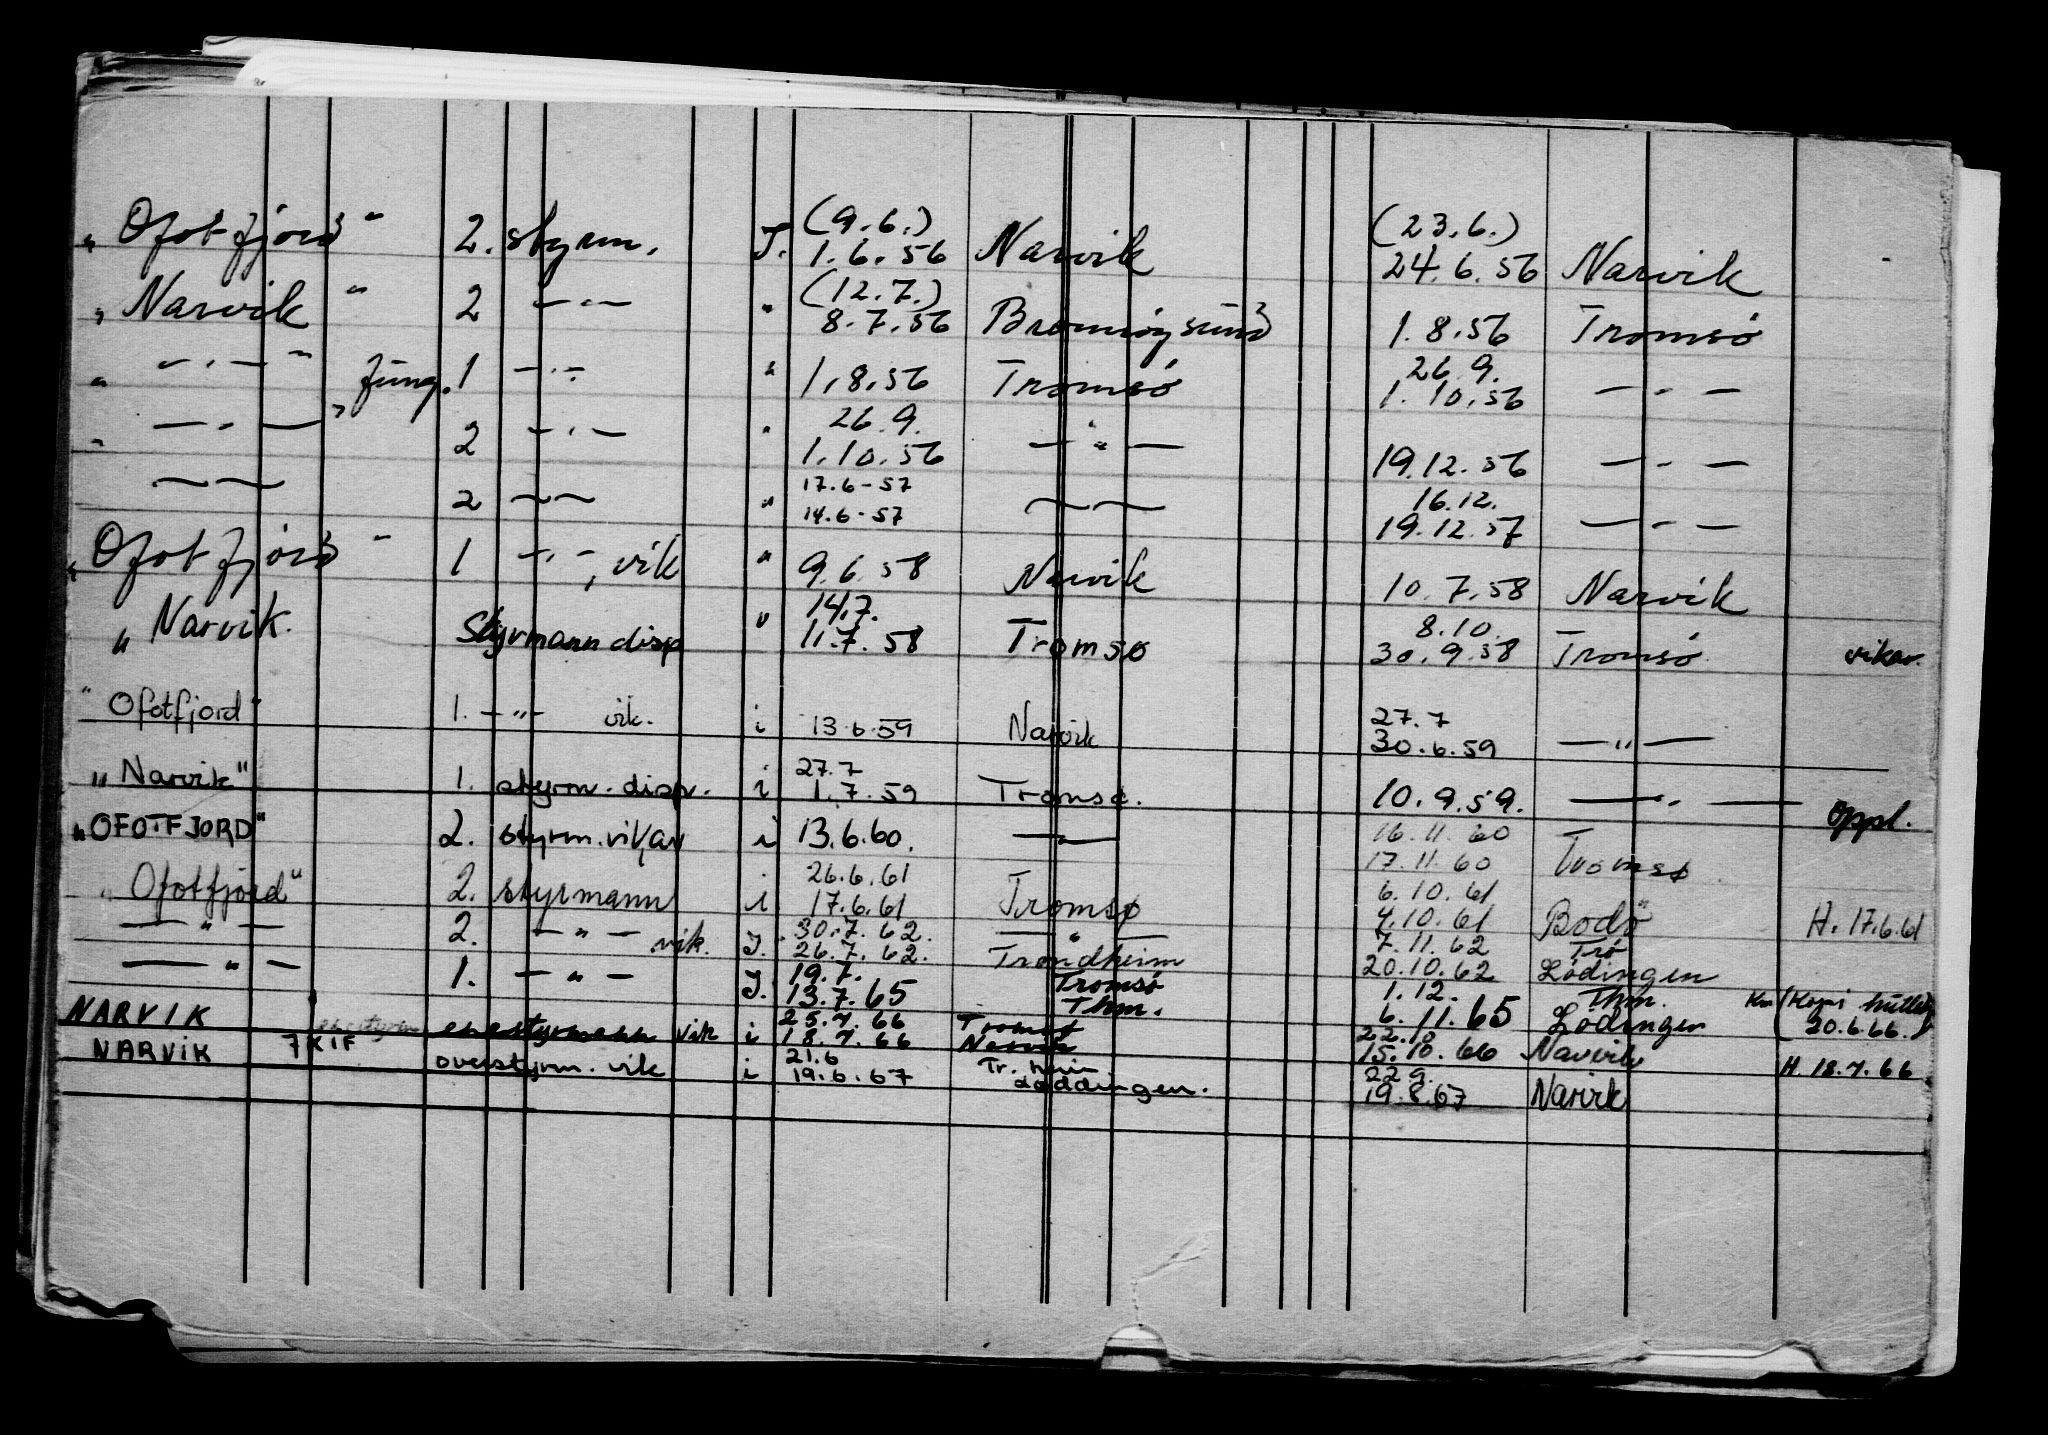 (9.6.) (23.6.)
"Ofotfjord" 2. styrm. J. 1.6.56 Narvik 24.6.56 Narvik
(12.7.)
"Narvik" 2 —"— " 8.7.56 Brønnøysund 1.8.56 Tromsø
26.9.
" —"— " fung. 1 —"— " 1.8.56 Tromsø 1.10.56 —"—
26.9.
" —"— " 2 —"— " 1.10.56 —"— 19.12.56 —"—
17.6-57 16.12.
—"— 2 —"— " 14.6-57 —"— 19.12.57 —"—
"Ofotfjord" 1 —"—, vik " 9.6.58 Narvik 10.7.58 Narvik
14.7. 8.10.
"Narvik. Styrmann disp " 1.7.58 Tromsø 30.9.58 Tromsø vikar.
27.7
"Ofotfjord" 1. —"— vik. i 13.6.59 Narvik 30.6.59 —"—
27.7
"Narvik" 1. styrm. disp. i 1.7.59 Tromsø. 10.9.59. —"— Oppl.
16.11.60
"OFOTFJORD" 2. styrm. vikar i 13.6.60. —"— 17.11.60 Tromsø
26.6.61 6.10.61
"Ofotfjord" 2. styrmann i 17.6.61 Tromsø 4.10.61 Bodø H. 17.6.61
30.7.62. —"— 7.11.62 Trø
—"— 2. —"— vik. J. 26.7.62. Trondheim 20.10.62 Lödingen
19.7. Tromsø 1.12. Thm.
—"— 1. —"— J. 13.7.65 Thm. 6.11.65 Lödingen (Kopi hulled 20.6.66.)
25.7.66 Tromsø 22.10
NARVIK vik i 18.7.66 Narvik 15.10.66 Narvik H. 18.7.66
21.6 Tr. heim 22.9.
NARVIK overstyrm. vik i 19.6.67 Løddingen. 19.8.67 Narvik